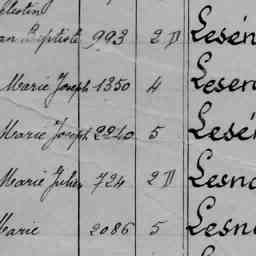 lestin
an Baptiste 993 2 D Lesén
Marie Joseph 1350 4 Lesen
Marie Joseph 2210 5 Lesé
Marie Julien 724 2 D Lesn
Marie 2086 5 Lesn